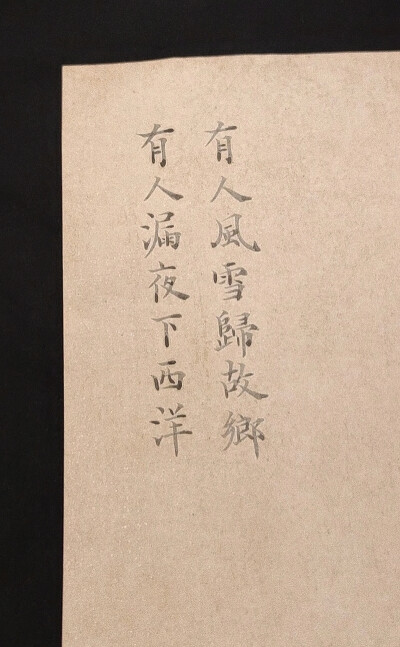 有人風雪歸故鄉
有人漏夜下西洋